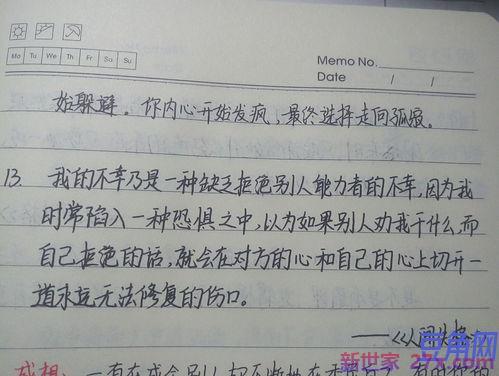 Mo Tu We Th Fr Sa Su
Memo No.
Date / /
始躲避。你内心开始发疯,最终选择走向孤寂。
13. 我的不幸乃是一种缺乏拒绝别人能力者的不幸,因为我
时常陷入一种恐惧之中,以为如果别人劝我干什么,而
自己拒绝的话,就会在对方的心和自己的心上切开一
道永远无法修复的伤口。
——《人间失格
感想:
新世家 27x.com